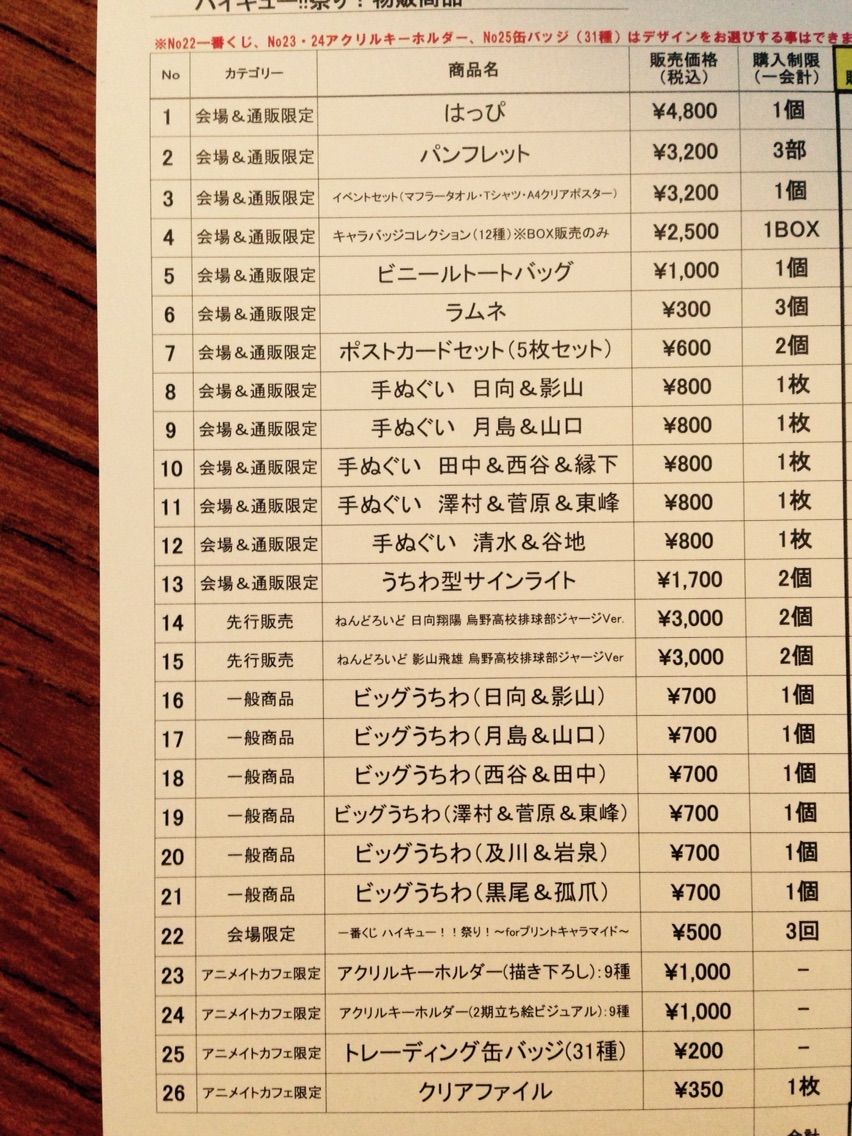 ハイキュー!!祭り！物販商品
※No22一番くじ、No23・24アクリルキーホルダー、No25缶バッジ（31種）はデザインをお選びする事はできま
No カテゴリー 商品名 販売価格（税込） 購入制限（一会計）
1 会場＆通販限定 はっぴ ¥4,800 1個
2 会場＆通販限定 パンフレット ¥3,200 3部
3 会場＆通販限定 イベントセット（マフラータオル・Tシャツ・A4クリアポスター） ¥3,200 1個
4 会場＆通販限定 キャラバッジコレクション（12種）※BOX販売のみ ¥2,500 1BOX
5 会場＆通販限定 ビニールトートバッグ ¥1,000 1個
6 会場＆通販限定 ラムネ ¥300 3個
7 会場＆通販限定 ポストカードセット（5枚セット） ¥600 2個
8 会場＆通販限定 手ぬぐい　日向＆影山 ¥800 1枚
9 会場＆通販限定 手ぬぐい　月島＆山口 ¥800 1枚
10 会場＆通販限定 手ぬぐい　田中＆西谷＆縁下 ¥800 1枚
11 会場＆通販限定 手ぬぐい　澤村＆菅原＆東峰 ¥800 1枚
12 会場＆通販限定 手ぬぐい　清水＆谷地 ¥800 1枚
13 会場＆通販限定 うちわ型サインライト ¥1,700 2個
14 先行販売 ねんどろいど 日向翔陽 烏野高校排球部ジャージVer. ¥3,000 2個
15 先行販売 ねんどろいど 影山飛雄 烏野高校排球部ジャージVer ¥3,000 2個
16 一般商品 ビッグうちわ（日向＆影山） ¥700 1個
17 一般商品 ビッグうちわ（月島＆山口） ¥700 1個
18 一般商品 ビッグうちわ（西谷＆田中） ¥700 1個
19 一般商品 ビッグうちわ（澤村＆菅原＆東峰） ¥700 1個
20 一般商品 ビッグうちわ（及川＆岩泉） ¥700 1個
21 一般商品 ビッグうちわ（黒尾＆孤爪） ¥700 1個
22 会場限定 一番くじ ハイキュー！！祭り！～forプリントキャラマイド～ ¥500 3回
23 アニメイトカフェ限定 アクリルキーホルダー(描き下ろし）：9種 ¥1,000 －
24 アニメイトカフェ限定 アクリルキーホルダー(2期立ち絵ビジュアル）：9種 ¥1,000 －
25 アニメイトカフェ限定 トレーディング缶バッジ(31種） ¥200 －
26 アニメイトカフェ限定 クリアファイル ¥350 1枚
合計